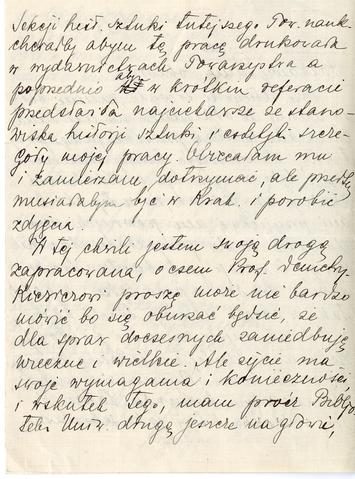 sekcji hist. sztuki tutejszego Tow. nauk
chciałby abym tę pracę drukowała
w wydawnictwach Towarzystwa a
poprzednio aby w krótkim referacie
przedstawiła najciekawsze ze stano-
wiska historji sztuki i codetki szcze-
góły mojej pracy. Obiecałam mu
i zamierzam dotrzymać, ale przedtem
musiałabym być w Krak. i porobić
zdjęcia.
W tej chwili jestem swoją drogą
zapracowana, o czem Prof.
proszę może nie bardzo
mówić bo się oburzać będzie, że
dla spraw doczesnych zaniedbuję
wieczne i wielkie. Ale życie ma
swoje wymagania i konieczności
i wskutek tego, mam prócz Bibljo-
teki Uniw. drugą jeszcze na głowie,